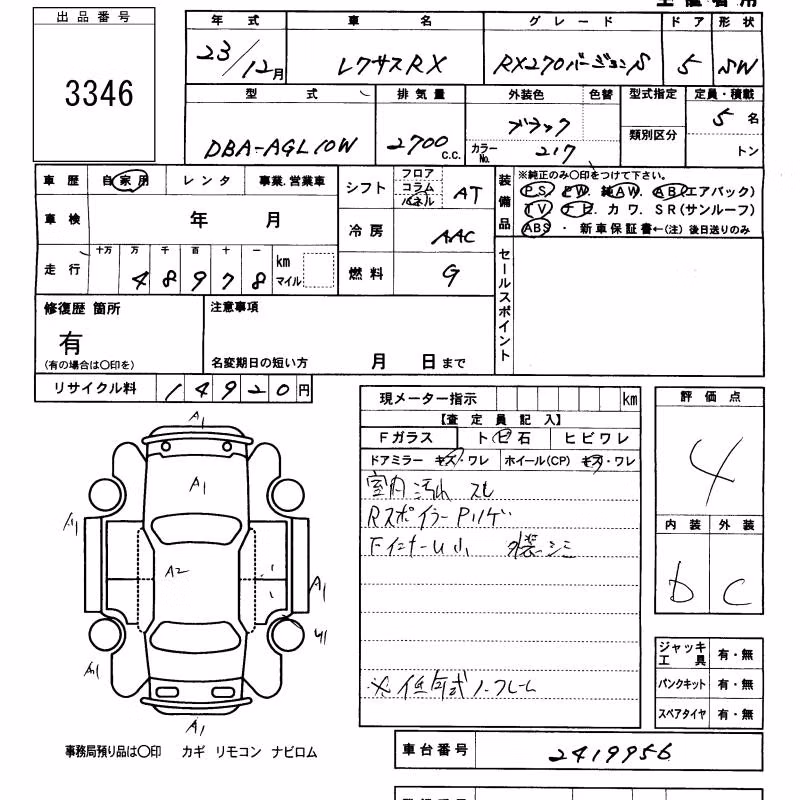 出品番号
3346
年式 車名 グレード ドア 形状
23/12月 レクサスRX RX270バージョンS 5 SW
型式 排気量 外装色 色替 型式指定 定員・積載
DBA-AGL10W 2700c.c. ブラック 類別区分 5名
カラーNo. 217 トン
車歴 自家用 レンタ 事業.営業車 シフト フロア コラム パネル AT
装備品 ※純正のみ〇印をつけて下さい。
PS. PW. 純AW. AB(エアバック)
TV. ナビ. カワ. SR(サンルーフ)
ABS ・ 新車保証書←(注) 後日送りのみ
車検 年 月 冷房 AAC
走行 十万 万 千 百 十 一 km マイル
48978
燃料 G
セールスポイント
修復歴 箇所 注意事項
有
(有の場合は〇印を) 名変期日の短い方 月 日まで
リサイクル料 14920円
現メーター指示 km
【査定員記入】
Fガラス トビ石 ヒビワレ
ドアミラー キズ・ワレ ホイール(CP) キズ・ワレ
室内汚れ スレ
Rスポイラー Pハゲ
Fインナー 小
※低年式ノーフレーム
評価点
4
内装 外装
b c
A1
A1
A1
A2
A1
A1
ジャッキ工具 有・無
パンクキット 有・無
スペアタイヤ 有・無
事務局預り品は〇印 カギ リモコン ナビロム
車台番号 2419956